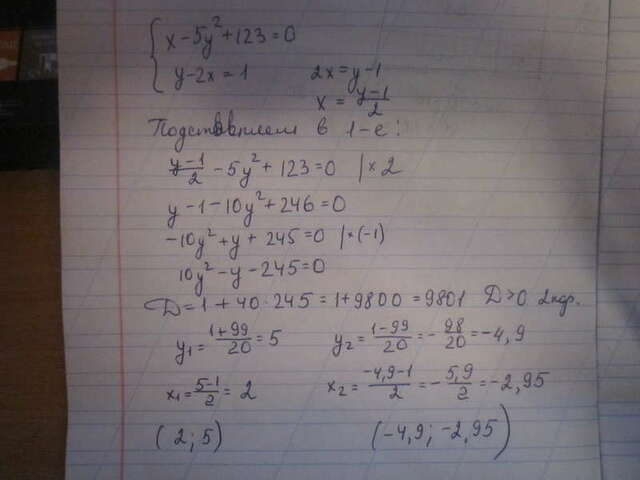 x - 5y² + 123 = 0
y - 2x = 1    2x = y - 1
x = (y-1)/2
Подставляем в 1-е:
(y-1)/2 - 5y² + 123 = 0 |×2
y - 1 - 10y² + 246 = 0
-10y² + y + 245 = 0 |×(-1)
10y² - y - 245 = 0
D = 1 + 40·245 = 1 + 9800 = 9801  D > 0 2 кор.
y₁ = (1+99)/20 = 5    y₂ = (1-99)/20 = -98/20 = -4,9
x₁ = (5-1)/2 = 2    x₂ = (-4,9-1)/2 = -5,9/2 = -2,95
(2; 5)    (-4,9; -2,95)